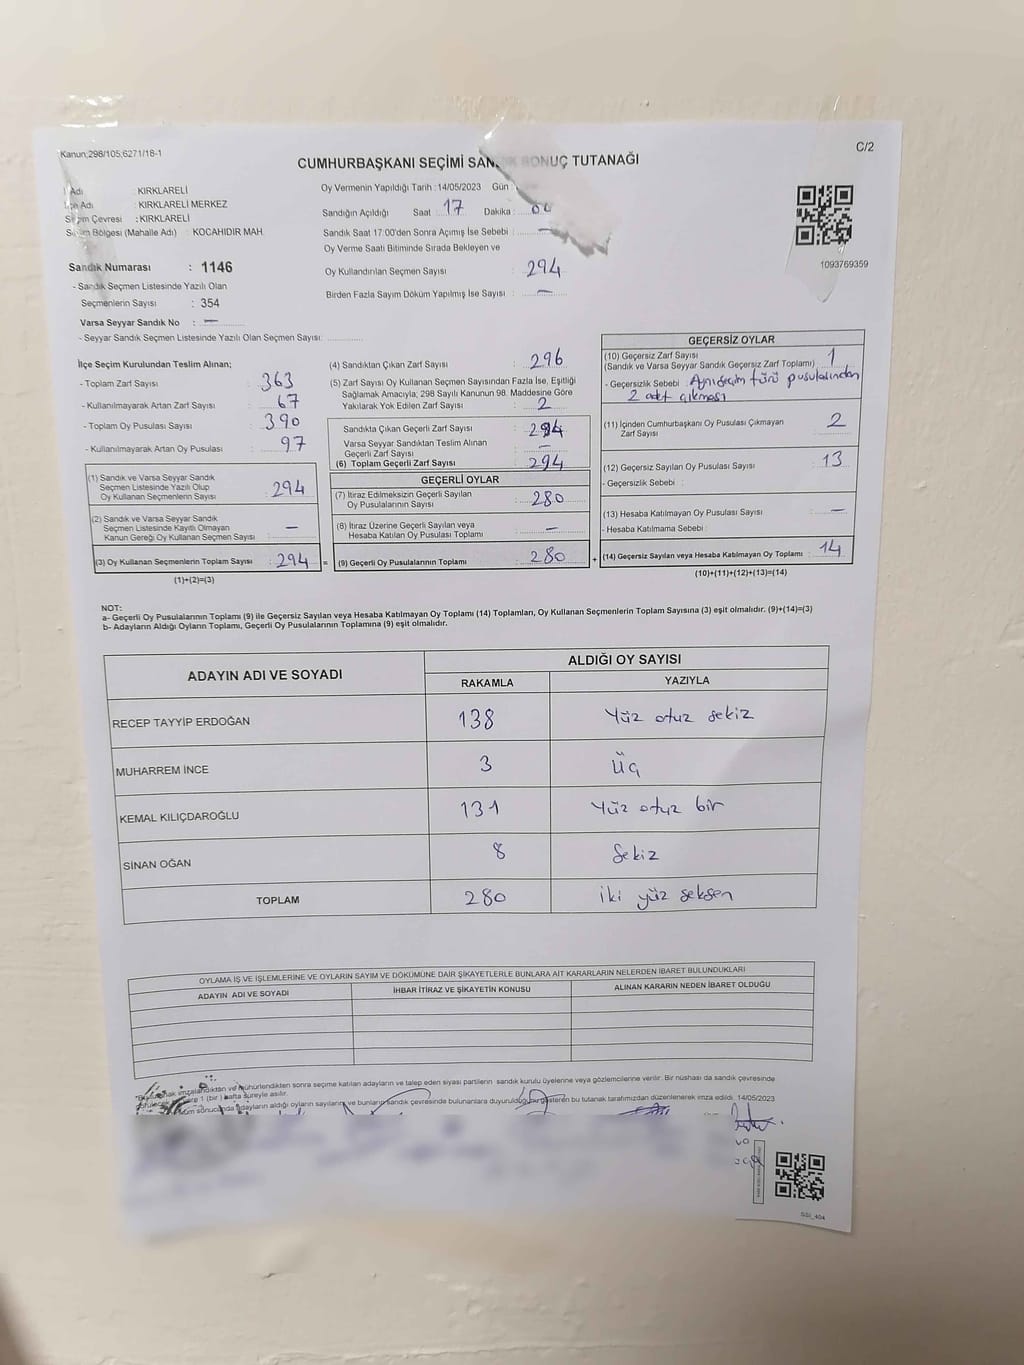 Kanun;298/105;6271/18-1
C/2
CUMHURBAŞKANI SEÇİMİ SONUÇ TUTANAĞI
Adı : KIRKLARELİ
Adı : KIRKLARELİ MERKEZ
Seçim Çevresi : KIRKLARELİ
Seçim Bölgesi (Mahalle Adı) : KOCAHIDIR MAH.
Sandık Numarası : 1146
- Sandık Seçmen Listesinde Yazılı Olan
Seçmenlerin Sayısı : 354
Varsa Seyyar Sandık No : —
- Seyyar Sandık Seçmen Listesinde Yazılı Olan Seçmen Sayısı:
Oy Vermenin Yapıldığı Tarih : 14/05/2023 Gün :
Sandığın Açıldığı Saat : 17 Dakika :
Sandık Saat 17:00'den Sonra Açımış İse Sebebi : —
Oy Verme Saati Bitiminde Sırada Bekleyen ve
Oy Kullandırılan Seçmen Sayısı : 294
Birden Fazla Sayım Döküm Yapılmış İse Sayısı : —
1093769359
İlçe Seçim Kurulundan Teslim Alınan;
- Toplam Zarf Sayısı : 363
- Kullanılmayarak Artan Zarf Sayısı : 67
- Toplam Oy Pusulası Sayısı : 390
- Kullanılmayarak Artan Oy Pusulası : 97
(1) Sandık ve Varsa Seyyar Sandık
Seçmen Listesinde Yazılı Olup
Oy Kullanan Seçmenlerin Sayısı : 294
(2) Sandık ve Varsa Seyyar Sandık
Seçmen Listesinde Kayıtlı Olmayan
Kanun Gereği Oy Kullanan Seçmen Sayısı : —
(3) Oy Kullanan Seçmenlerin Toplam Sayısı : 294 =
(1)+(2)=(3)
(4) Sandıktan Çıkan Zarf Sayısı : 296
(5) Zarf Sayısı Oy Kullanan Seçmen Sayısından Fazla İse, Eşitliği
Sağlamak Amacıyla; 298 Sayılı Kanunun 98. Maddesine Göre
Yakılarak Yok Edilen Zarf Sayısı : 2
Sandıkta Çıkan Geçerli Zarf Sayısı : 294
Varsa Seyyar Sandıktan Teslim Alınan
Geçerli Zarf Sayısı : —
(6) Toplam Geçerli Zarf Sayısı : 294
GEÇERLİ OYLAR
(7) İtiraz Edilmeksizin Geçerli Sayılan
Oy Pusulasının Sayısı : 280
(8) İtiraz Üzerine Geçerli Sayılan veya
Hesaba Katılan Oy Pusulası Toplamı : —
(9) Geçerli Oy Pusulalarının Toplamı : 280 +
GEÇERSİZ OYLAR
(10) Geçersiz Zarf Sayısı : 1
(Sandık ve Varsa Seyyar Sandık Geçersiz Zarf Toplamı)
- Geçersizlik Sebebi : Aynı seçim türü pusulasından
2 adet çıkması
(11) İçinden Cumhurbaşkanı Oy Pusulası Çıkmayan
Zarf Sayısı : 2
(12) Geçersiz Sayılan Oy Pusulası Sayısı : 13
- Geçersizlik Sebebi :
(13) Hesaba Katılmayan Oy Pusulası Sayısı : —
- Hesaba Katılmama Sebebi :
(14) Geçersiz Sayılan veya Hesaba Katılmayan Oy Toplamı : 14
(10)+(11)+(12)+(13)=(14)
NOT:
a- Geçerli Oy Pusulalarının Toplamı (9) ile Geçersiz Sayılan veya Hesaba Katılmayan Oy Toplamı (14) Toplamları, Oy Kullanan Seçmenlerin Toplam Sayısına (3) eşit olmalıdır. (9)+(14)=(3)
b- Adayların Aldığı Oyların Toplamı, Geçerli Oy Pusulalarının Toplamına (9) eşit olmalıdır.
ADAYIN ADI VE SOYADI
ALDIĞI OY SAYISI
RAKAMLA YAZIYLA
RECEP TAYYİP ERDOĞAN 138 Yüz otuz sekiz
MUHARREM İNCE 3 Üç
KEMAL KILIÇDAROĞLU 131 Yüz otuz bir
SİNAN OĞAN 8 Sekiz
TOPLAM 280 iki yüz seksen
OYLAMA İŞ VE İŞLEMLERİNE VE OYLARIN SAYIM VE DÖKÜMÜNE DAİR ŞİKAYETLERLE BUNLARA AİT KARARLARIN NELERDEN İBARET BULUNDUKLARI
ADAYIN ADI VE SOYADI İHBAR İTİRAZ VE ŞİKAYETİN KONUSU ALINAN KARARIN NEDEN İBARET OLDUĞU
imzalandıktan ve mühürlendikten sonra seçime katılan adayların ve talep eden siyasi partilerin sandık kurulu üyelerine veya gözlemcilerine verilir. Bir nüshası da sandık çevresinde
1 (bir) hafta süreyle asılır.
sonucunda adayların aldığı oyların sayılarını ve bunların sandık çevresinde bulunanlara duyurulduğunu gösteren bu tutanak tarafımızdan düzenlenerek imza edildi. 14/05/2023